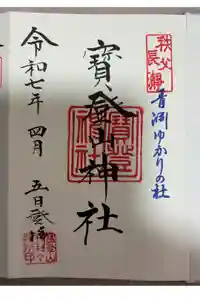 秩父
長瀞
青淵ゆかりの社
寳登山神社
令和七年 四月 五日登拝